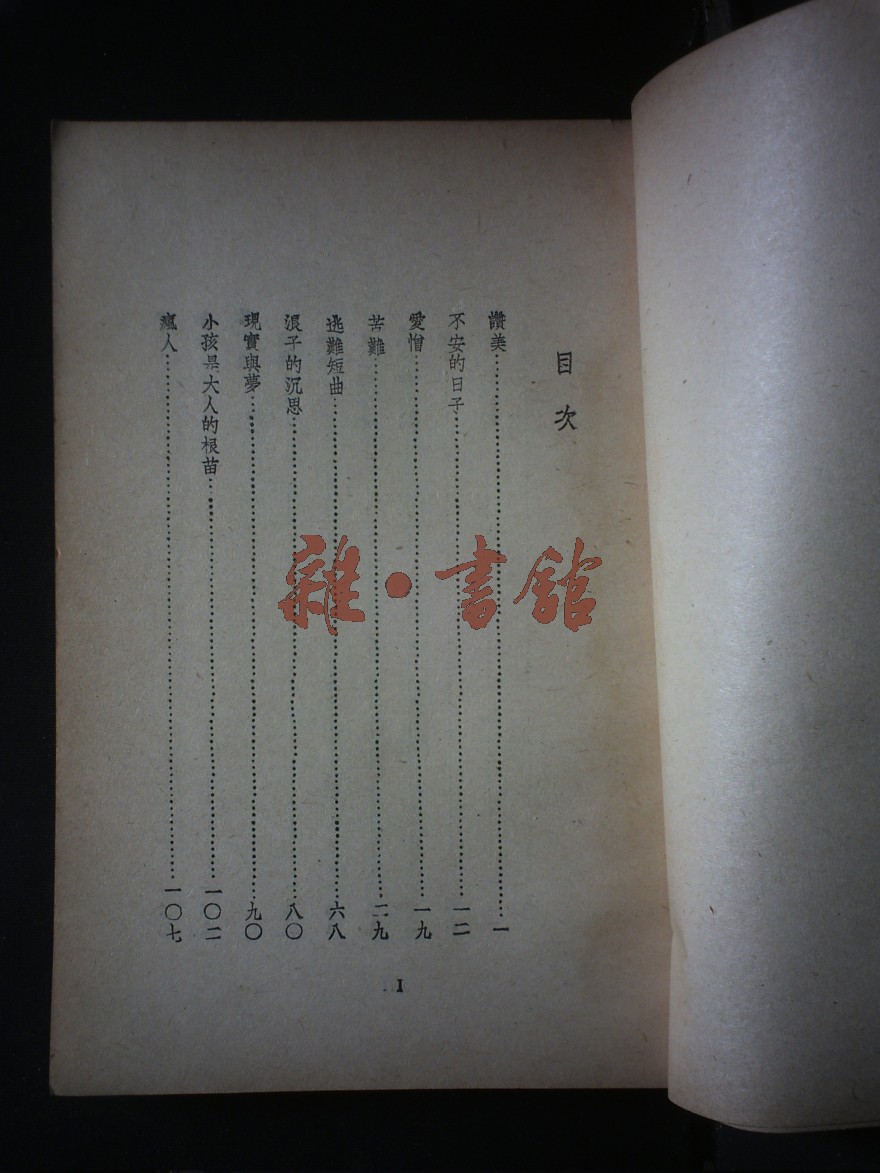 目次
讚美……一
不安的日子……一二
愛憎……一九
苦難……二九
逃難短曲……六八
浪子的沉思……八〇
現實與夢……九〇
小孩是大人的根苗……一〇二
瘋人……一〇七
I
雜·書館